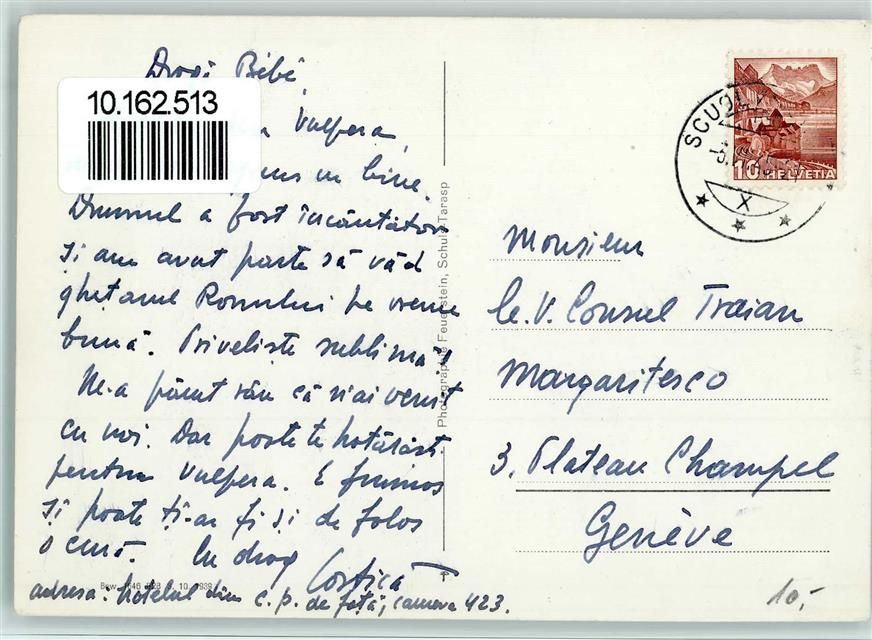 Dragă Bibi,
10.162.513
Vulpera
bine
Drumul a fost încântător
și am avut parte să văd
ghețarul Ronului pe vreme
bună. Priveliște sublimă!
Ne-a părut rău că n'ai venit
cu noi. Dar poate te hotărăști
pentru Vulpera. E frumos
și poate ți-ar fi și de folos
o cură. Cu drag
Costică
adresa: hotelul din c. p. de față, camera 423.
Photographie Feuerstein, Schuls-Tarasp
SCUOL
10 HELVETIA
X
Monsieur
le V. Consul Traian
Margaritesco
3, Plateau Champel
Genève
10,-